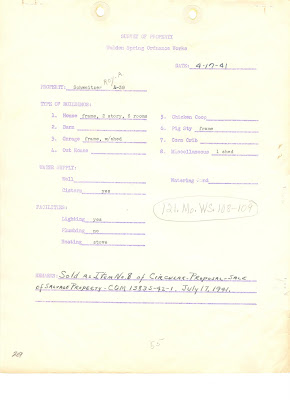 SURVEY OF PROPERTY
Weldon Spring Ordnance Works
DATE: 4-17-41
ADJ-A
PROPERTY: Schweitzer A-28
TYPE OF BUILDINGS:
1. House frame, 2 story, 8 rooms
2. Barn
3. Garage frame, w/shed
4. Out House
5. Chicken Coop
6. Pig Sty frame
7. Corn Crib
8. Miscellaneous 1 shed
WATER SUPPLY:
Well
Cistern yes
Watering Pond
FACILITIES:
Lighting yes
Plumbing no
Heating stove
REMARKS: Sold as Item No. 8 of Circular-Proposal-Sale
of Salvage Property - CQM 13835-42-1. July 17, 1941.